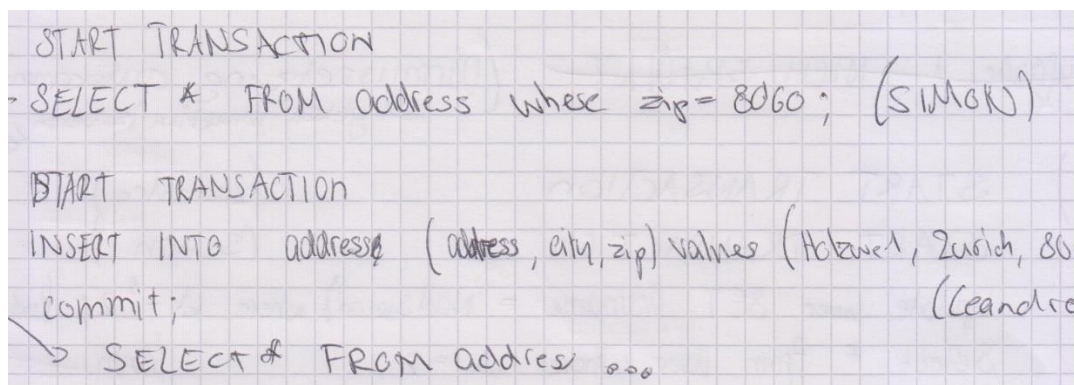 START TRANSACTION
SELECT * FROM address where zip = 8060; (SIMON)
START TRANSACTION
INSERT INTO address (address, city, zip) values (Holzweg, Zurich, 80
commit; (Leandro
SELECT * FROM addres ...